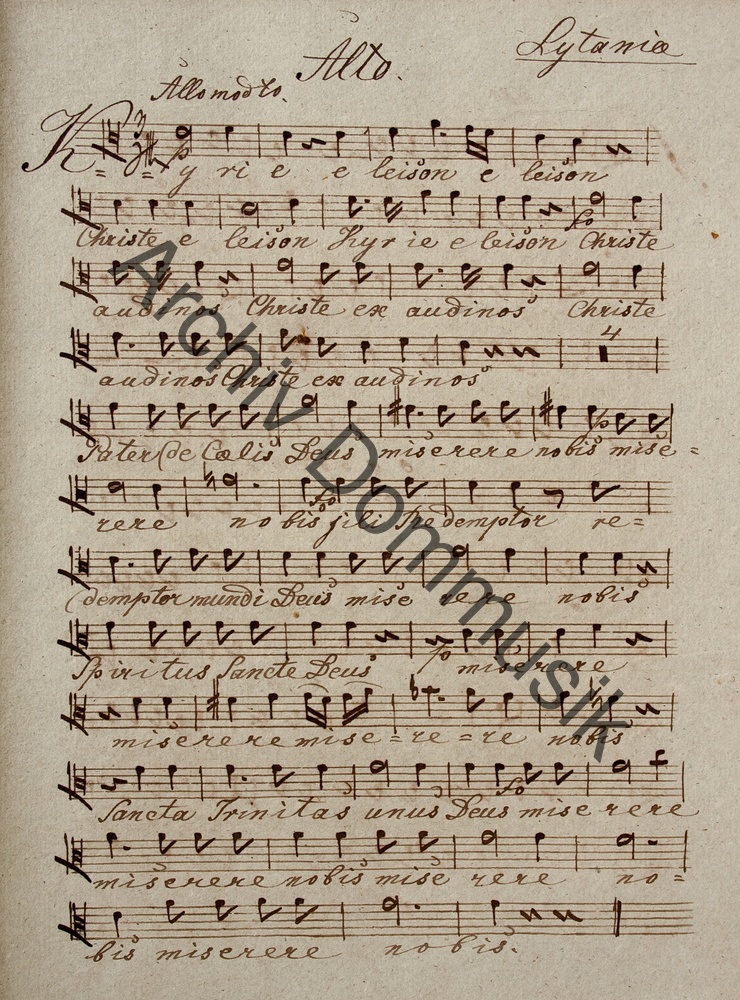 Lytaniæ
Alto.
Allo modto.
Ky=rie e leison e leison
Christe e leison Kyrie e leison Christe
audinos Christe ex audinos Christe
4
audinos Christe ex audinos
Pater de Cœlis Deus miserere nobis mise=
rere nobis fili Redemptor re=
demptor mundi Deus mise rere nobis
Spiritus Sancte Deus miserere
miserere mise=re=re nobis
Sancta Trinitas unus Deus miserere
miserere nobis mise rere no=
bis miserere nobis.
Archiv Dommusik